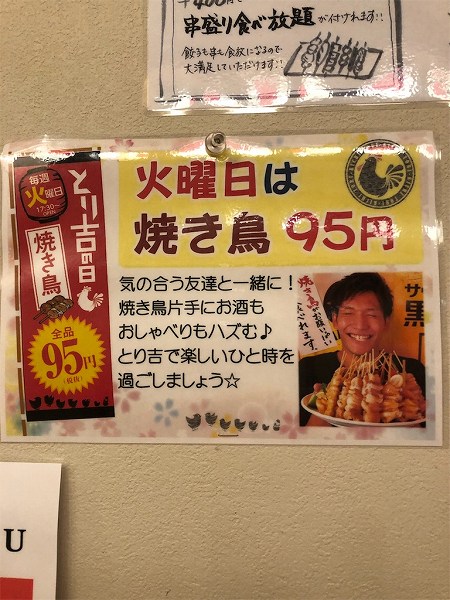 串盛り食べ放題が付けれます!!
餃子も串も食放になるので
大満足していただけます!!
毎週
火曜日
17:30〜
OPEN
とり吉の日
焼き鳥
全品
95円
(税抜)
火曜日は
焼き鳥 95円
気の合う友達と一緒に!
焼き鳥片手にお酒も
おしゃべりもハズむ♪
とり吉で楽しいひと時を
過ごしましょう☆
U